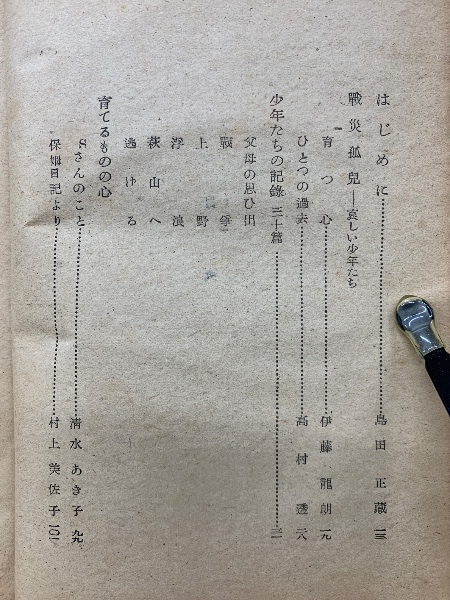 はじめに……島田正蔵 一三
戰災孤兒――哀しい少年たち
育つ心……伊藤龍朗 一九
ひとつの過去……高村透 二八
少年たちの記錄 三十篇……三一
父母の思ひ出
戰爭
上野
浮浪
萩山へ
逃げる
育てるものの心
Sさんのこと……淸水あき子 九九
保姆日記より……村上美佐子 一〇一